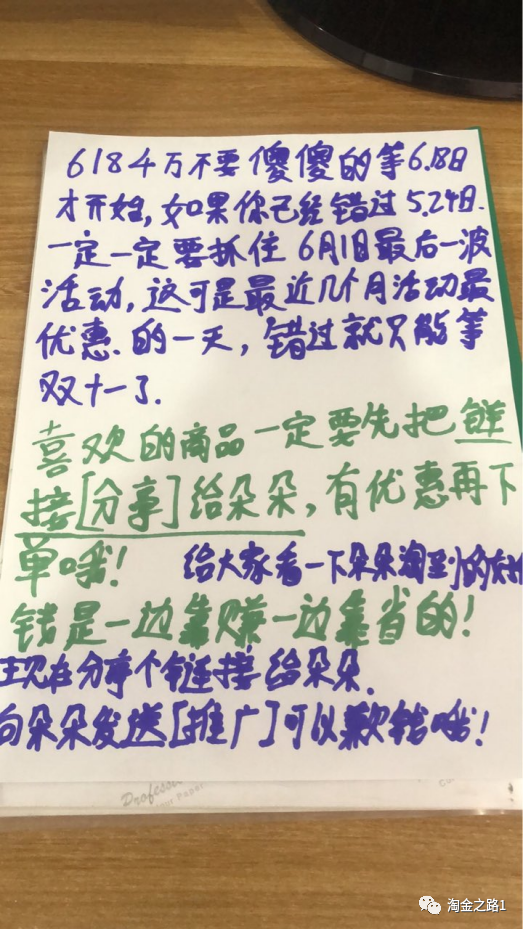 6184万不要傻傻的等6.18日
才开始，如果你已经错过5.24日.
一定一定要抓住6月1日最后一波
活动，这可是最近几个月活动最
优惠.的一天，错过就只能等
双十一了.
喜欢的商品一定要先把链
接[分享]给朵朵，有优惠再下
单哦！
给大家看一下朵朵淘到的
钱是一边靠赚一边靠省的！
现在分享个链接给朵朵.
向朵朵发送[推广]可以赚钱哦！
Professi
Paper
淘金之路1